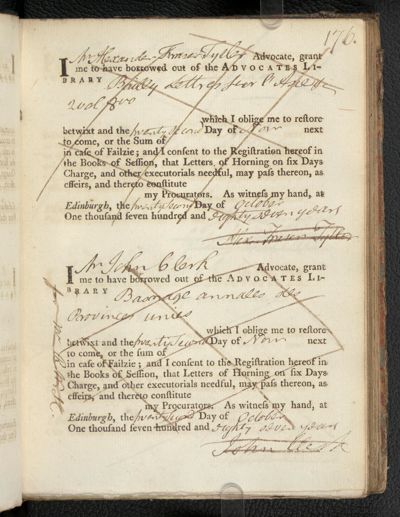 176.
I Mr Alexander Fraser Tytler Advocate, grant
me to have borrowed out of the ADVOCATES LI-
BRARY Lettres sur
2 vol 8vo
which I oblige me to restore
betwixt and the twenty second Day of Novr next
to come, or the Sum of
in case of Failzie; and I consent to the Registration hereof in
the Books of Session, that Letters of Horning on six Days
Charge, and other executorials needful, may pass thereon, as
effeirs, and thereto constitute
my Procurators. As witness my hand, at
Edinburgh, the twenty second Day of October
One thousand seven hundred and eighty seven years
Alex. Fraser Tytler
I Mr John Clerk Advocate, grant
me to have borrowed out of the ADVOCATES LI-
BRARY Basnage annales des
Provinces unies
which I oblige me to restore
betwixt and the twenty second Day of Novr next
to come, or the sum of
in case of Failzie; and I consent to the Registration hereof in
the Books of Session, that Letters of Horning on six Days
Charge, and other executorials needful, may pass thereon, as
effeirs, and thereto constitute
my Procurators. As witness my hand, at
Edinburgh, the twenty second Day of October
One thousand seven hundred and eighty seven years
John Clerk